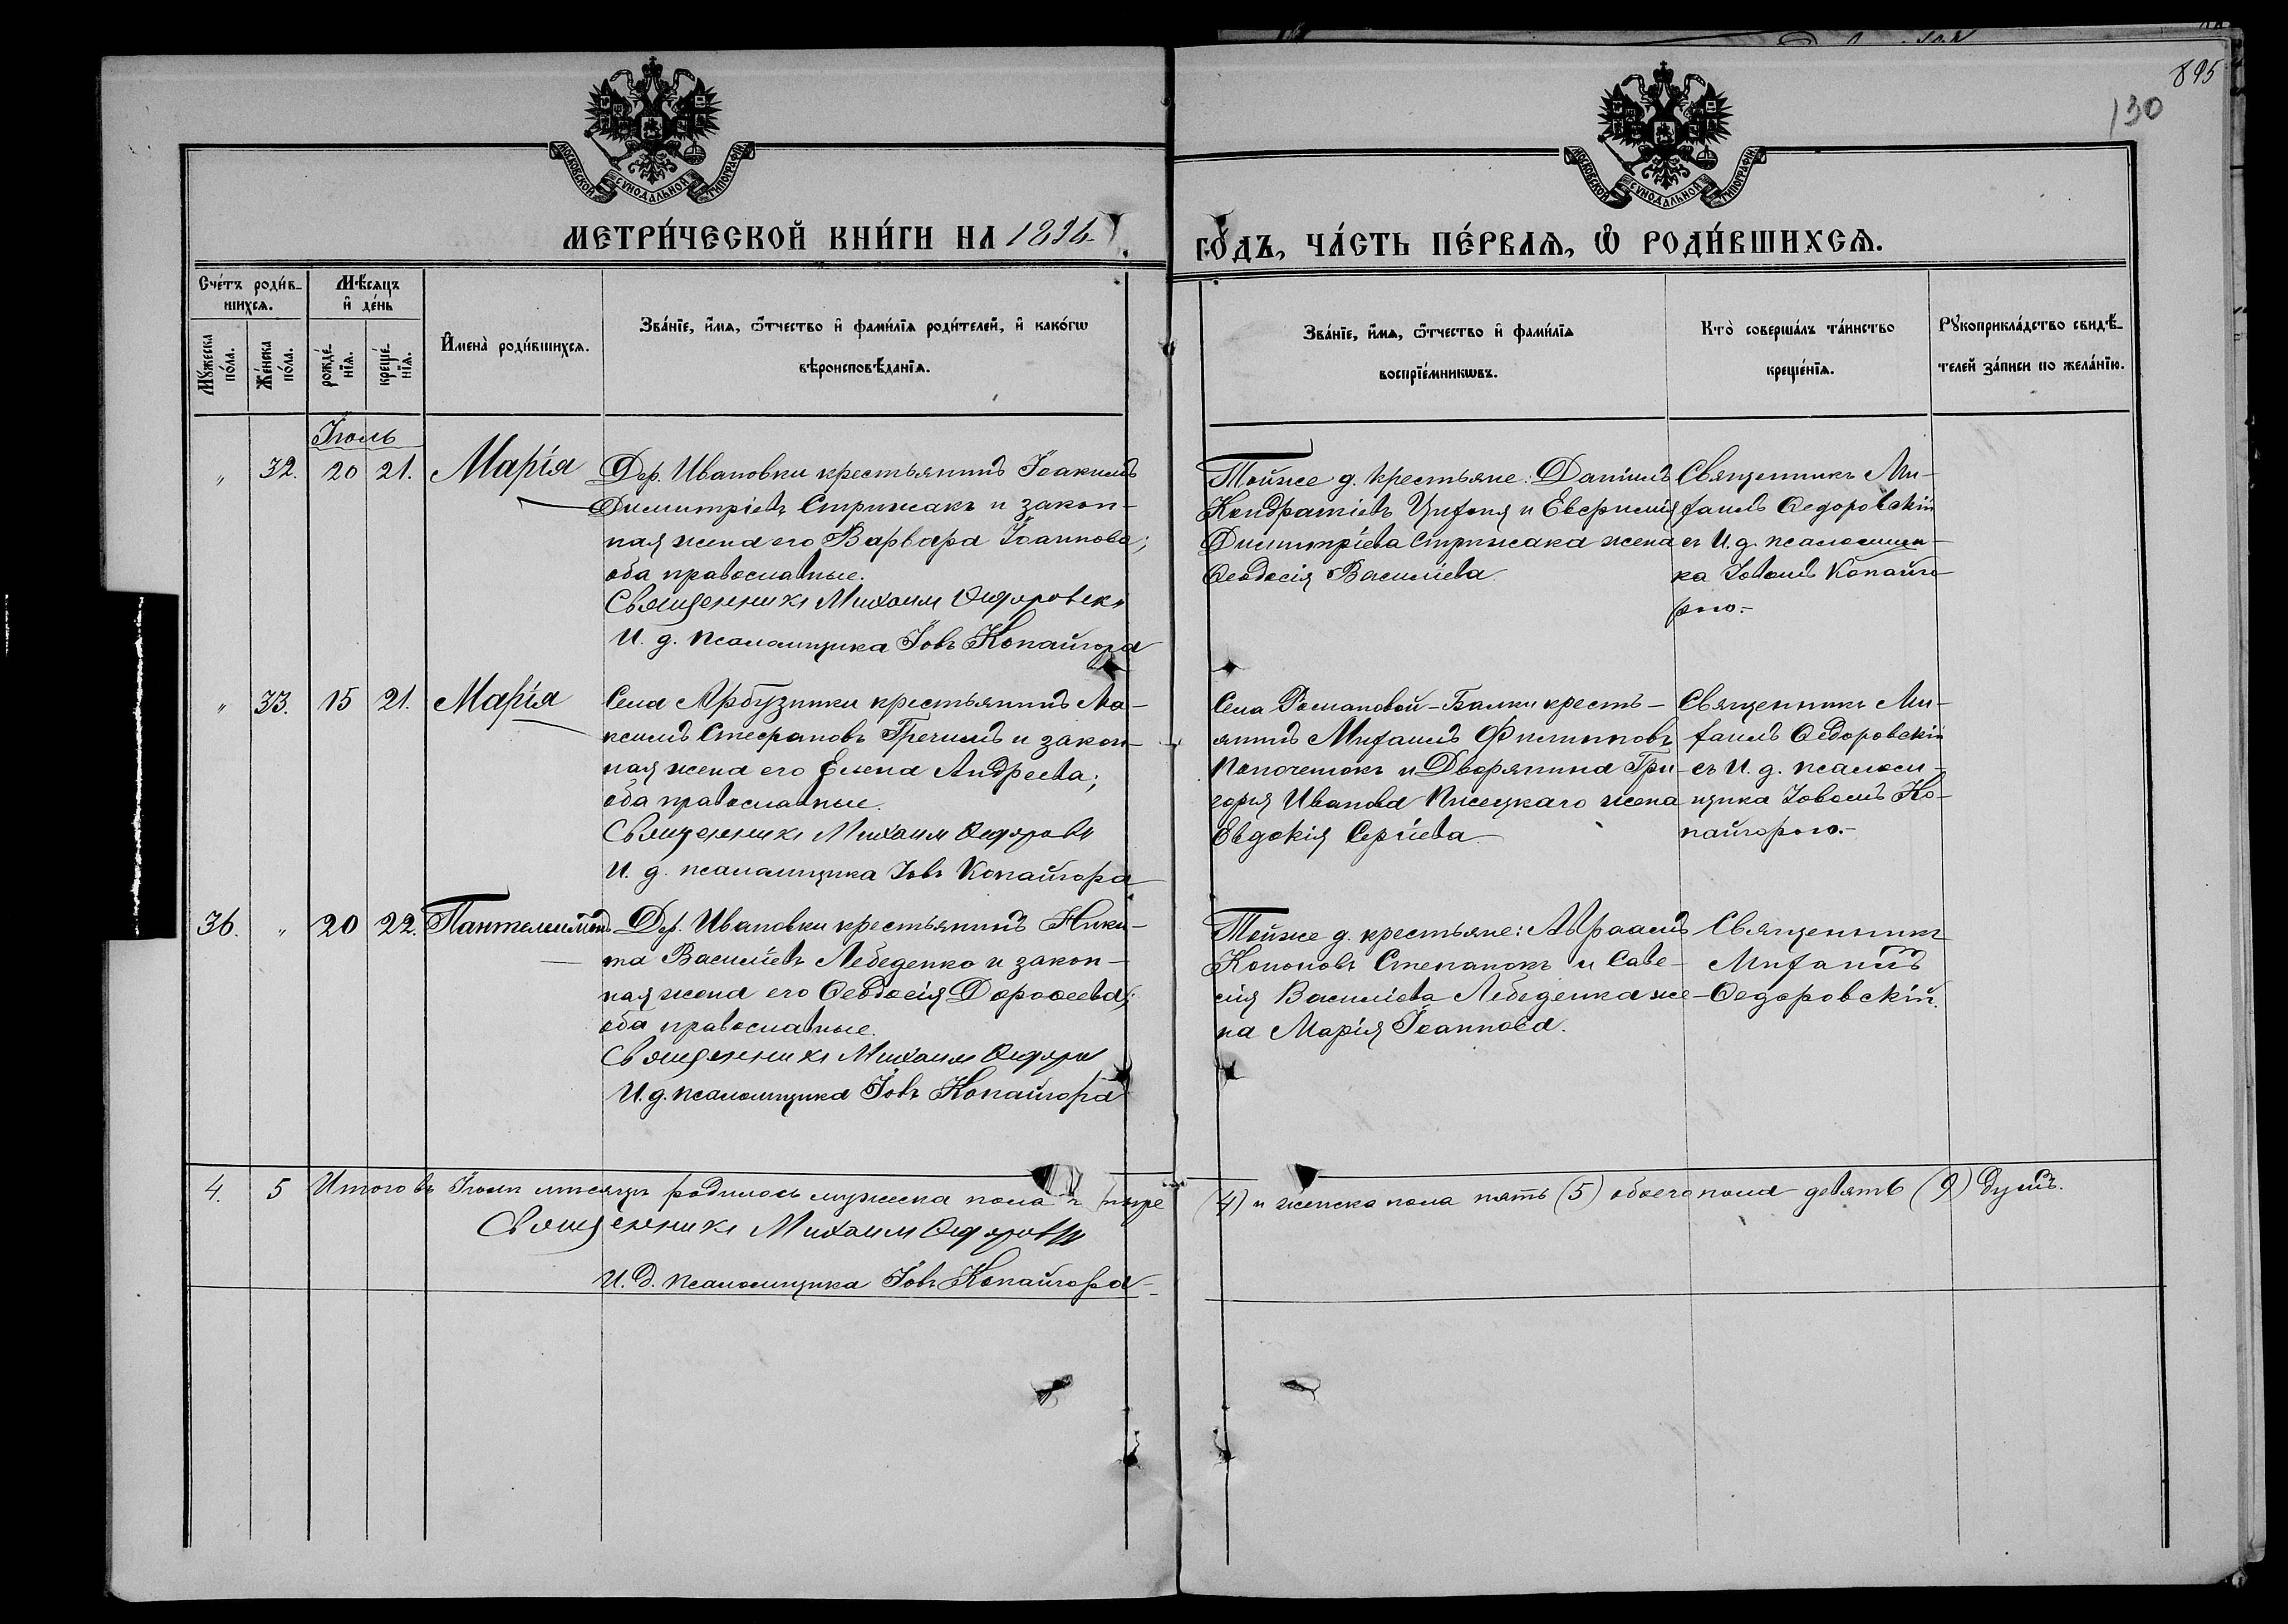 895
130
МОСКОВСКОЙ СѴНОДАЛЬНОЙ ТИПОГРАФІИ
МОСКОВСКОЙ СѴНОДАЛЬНОЙ ТИПОГРАФІИ
МЕТРИ́ЧЕСКОЙ КНИ́ГИ НА 1896
ГО́ДЪ, ЧА́СТЬ ПЕ́РВАѦ, Ѡ҆ РОДИ́ВШИХСѦ.
Сче́тъ роди́в-
шихсѧ.
Мѣ́сѧцъ
и҆ де́нь
Мꙋ́жеска
по́ла.
Же́нска
по́ла.
рожде́-
нїѧ.
креще́-
нїѧ.
И҆мена̀ роди́вшихсѧ.
Зва́нїе, и҆́мѧ, ѻ҆́тчество и҆ фами́лїѧ роди́телей, и҆ како́гѡ
вѣроисповѣ́данїѧ.
Зва́нїе, и҆́мѧ, ѻ҆́тчество и҆ фами́лїѧ
воспрїе́мникѡвъ.
Кто̀ соверша́лъ та́инство
креще́нїѧ.
Рꙋкоприкла́дство свидѣ́-
телей за́писи по жела́нїю.
Іюль
„ 32. 20 21. Марія
Дер. Ивановки крестьянинъ Іоакимъ
Димитріевъ Стрижакъ и закон-
ная жена его Варвара Іоаннова;
оба православные.
Священникъ Михаилъ Ѳедоровск
И. д. псаломщика Іовъ Копайгора
Тойже д. крестьяне: Даніилъ
Кондратіевъ Цифоня и Евфимія
Димитріева Стрижака жена
Ѳеодосія Васильева.
Священникъ Ми-
хаилъ Ѳедоровскій
съ И. д. псаломщи-
ка Іовомъ Копайго-
рою.-
„ 33. 15 21. Марія
Села Арбузинки крестьянинъ Ма-
ксимъ Стефановъ Гречинъ и закон-
ная жена его Елена Андреева;
оба православные.
Священникъ Михаилъ Ѳедоровс
И. д. псаломщика Іовъ Копайгора
Села Романовой-Балки кресть-
янинъ Михаилъ Филипповъ
и Дворянина Гри-
горія Иванова Писецкаго жена
Евдокія Сергіева
Священникъ Ми-
хаилъ Ѳедоровскій
съ И. д. псалом-
щика Іовомъ Ко-
пайгорою.-
36. „ 20 22. Пантелеимонъ
Дер. Ивановки крестьянинъ Ники-
та Васильевъ Лебеденко и закон-
ная жена его Ѳеодосія Дороѳеева;
оба православные.
Священникъ Михаилъ Ѳедоров
И. д. псаломщика Іовъ Копайгора
Тойже д. крестьяне: Авраамъ
Кононовъ Степанокъ и Саве-
лія Васильева Лебеденка же-
на Марія Іоаннова.
Священникъ
Михаилъ
Ѳедоровскій.
4. 5 Итого въ Іюлѣ мѣсяцѣ родилось мужеска пола четыре
(4) и женска пола пять (5) обоего пола девять (9) душъ.
Священникъ Михаилъ Ѳедоровск
И. д. псаломщика Іовъ Копайгора